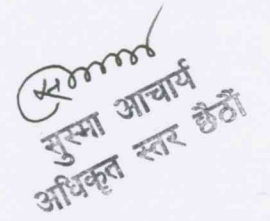 सुस्मा आचार्य
अधिकृत स्तर छैठौं